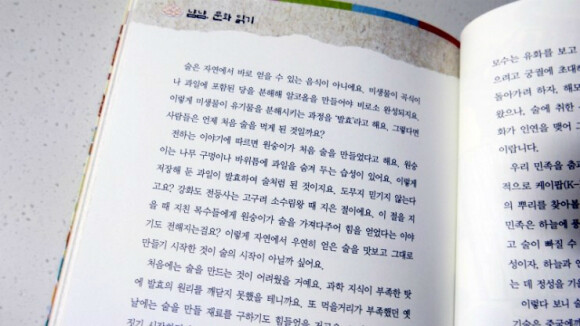 냠냠, 문화 읽기
술은 자연에서 바로 얻을 수 있는 음식이 아니에요. 미생물이 곡식이
나 과일에 포함된 당을 분해해 알코올을 만들어야 비로소 완성되지요.
이렇게 미생물이 유기물을 분해시키는 과정을 '발효'라고 해요. 그렇다면
사람들은 언제 처음 술을 먹게 된 것일까요?
전하는 이야기에 따르면 원숭이가 처음 술을 만들었다고 해요. 원숭
이는 나무 구멍이나 바위틈에 과일을 숨겨 두는 습성이 있어요. 이렇게
저장해 둔 과일이 발효하여 술처럼 된 것이지요. 도무지 믿기지 않는다
고요? 강화도 전등사는 고구려 소수림왕 때 지은 절이에요. 이 절을 지
을 때 지친 목수들에게 원숭이가 술을 가져다주어 힘을 얻었다는 이야
기도 전해지는걸요? 이렇게 자연에서 우연히 얻은 술을 맛보고 그대로
만들기 시작한 것이 술의 시작이 아닐까 싶어요.
처음에는 술을 만드는 것이 어려웠을 거예요. 과학 지식이 부족한 탓
에 발효의 원리를 깨닫지 못했을 테니까요. 또 먹을거리가 부족했던 옛
날에는 술을 만들 재료를 구하기도 힘들었을
짓기 시작
보수는 유화를 보고
으려고 궁궐에 초대
돌아가려 하자, 해모
왔으나, 술에 취한
화가 인연을 맺어
이랍니다.
우리 민족은 춤과
적으로 케이팝(K-
의 뿌리를 찾아볼
민족은 하늘에
고 술이 빠질 수
성이자, 하늘과 인
는 데 정성을 기울
이렇다 보니 술
기술은 중국에